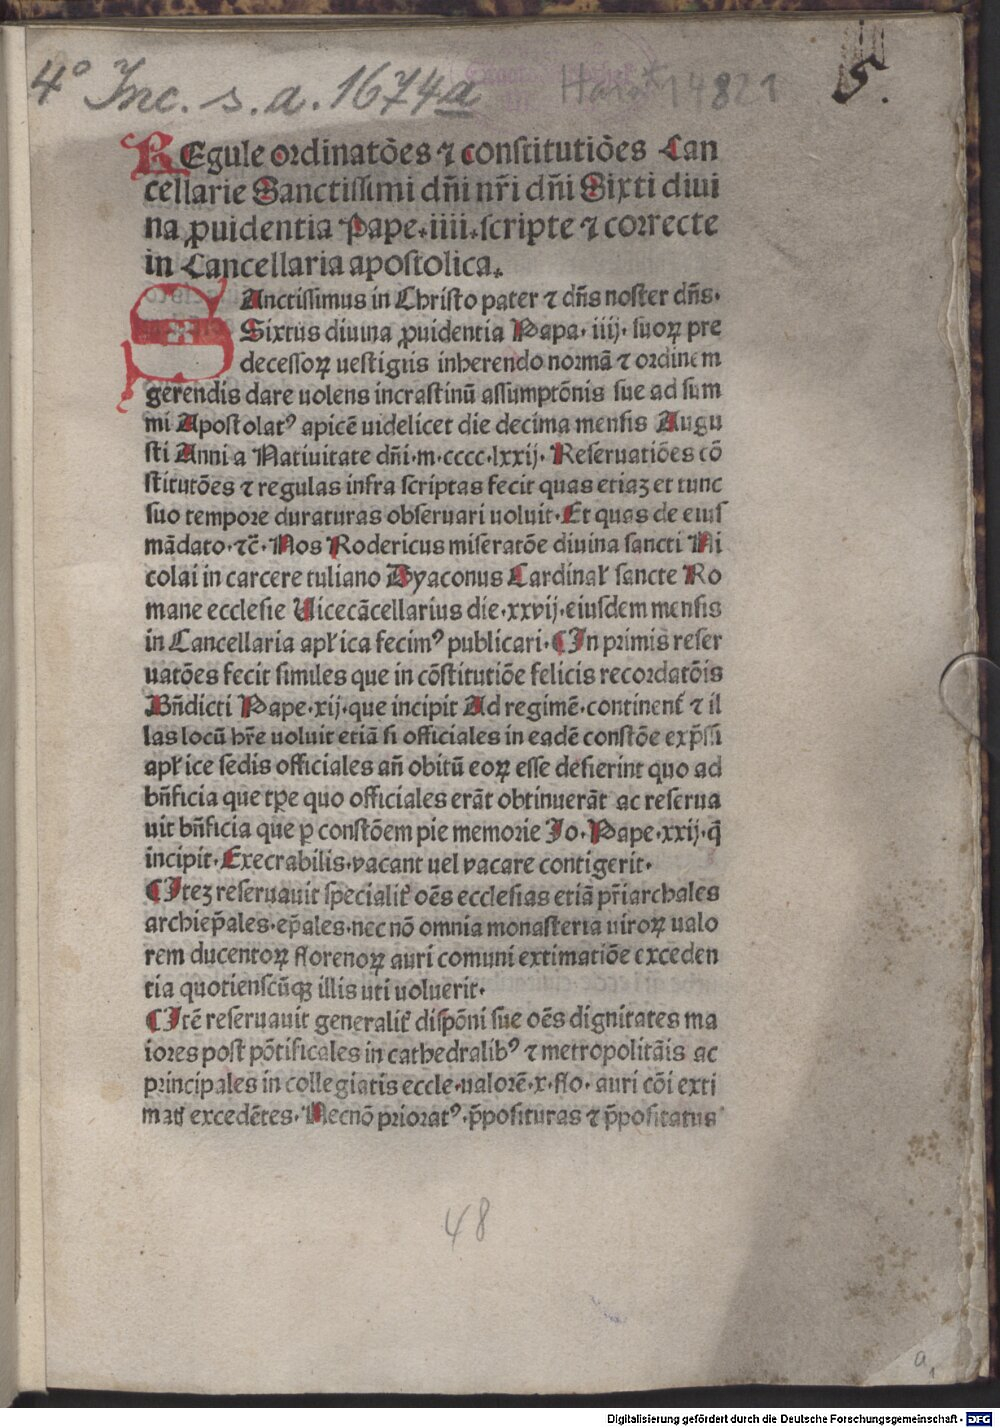 4° Inc. s. a. 1674a
Hain * 14821
5.
REgule ordinatões ⁊ constitutiões Can
cellarie Sanctissimi dñi nr̃i dñi Sixti diui
na ꝓuidentia Pape. iiii. scripte ⁊ correcte
in Cancellaria apostolica.
SAnctissimus in Christo pater ⁊ dñs noster dñs.
Sixtus diuina ꝓuidentia Papa. iiij. suoꝝ pre
decessoꝝ uestigiis inherendo normã ⁊ ordinem
gerendis dare uolens incrastinũ assumptõnis sue ad sum
mi Apostolatꝰ apicẽ uidelicet die decima mensis Augu
sti Anni a Natiuitate dñi. m. cccc. lxxij. Reseruatiões cõ
stitutões ⁊ regulas infra scriptas fecit quas etiaz et tunc
suo tempore duraturas obseruari uoluit. Et quas de eius
mãdato. ⁊c̃. Nos Rodericus miseratõe diuina sancti Ni
colai in carcere tuliano Dyaconus Cardinał sancte Ro
mane ecclesie Uicecãcellarius die. xxvij. eiusdem mensis
in Cancellaria apłica fecimꝰ publicari. ¶ In primis reser
uatões fecit similes que in cõstitutiõe felicis recordatõis
Bñdicti Pape. xij. que incipit Ad regimẽ. continent̃ ⁊ il
las locũ hr̃e uoluit etiã si officiales in eadẽ constõe exp̃ssi
apłice sedis officiales añ obitũ eoꝝ esse desierint quo ad
bñficia que tp̃e quo officiales erãt obtinuerãt ac reserua
uit bñficia que ꝑ constõem pie memorie Jo. Pape. xxij. q̃
incipit. Execrabilis. vacant uel vacare contigerit.
¶ Itez reseruauit specialit̃ oẽs ecclesias etiã pr̃iarchales
archiep̃ales. ep̃ales. nec nõ omnia monasteria uiroꝝ ualo
rem ducentoꝝ florenoꝝ auri comuni extimatiõe exceden
tia quotienscũqꝫ illis uti uoluerit.
¶ Itẽ reseruauit generalit̃ dispõni sue oẽs dignitates ma
iores post põtificales in cathedralibꝰ ⁊ metropolitãis ac
principales in collegiatis eccle. ualorẽ. x. flo. auri cõi exti
matõ excedẽtes. Necnõ prioratꝰ. p̃posituras ⁊ p̃positatus
48
a1
Digitalisierung gefördert durch die Deutsche Forschungsgemeinschaft - DFG